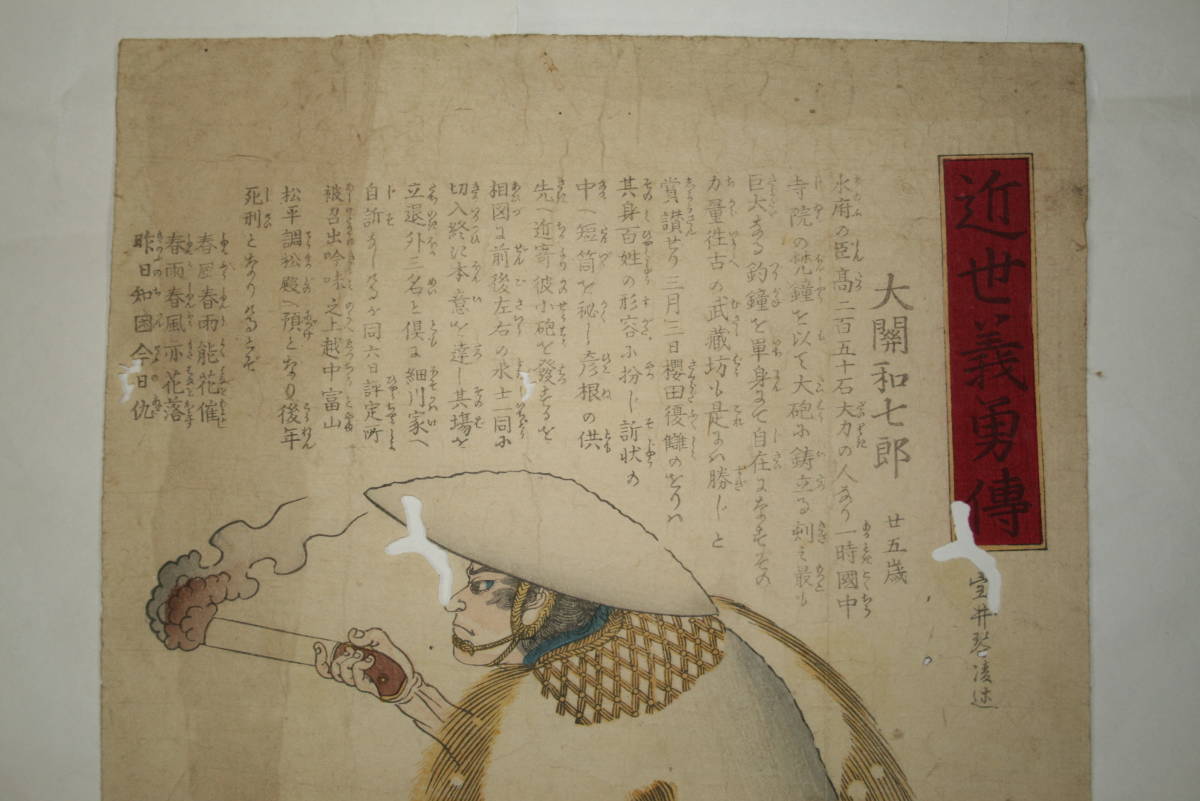 近世義勇傳
大關和七郎 廿五歳
水府の臣高二百五十石大力の人なり一時國中
寺院の梵鐘を以て大砲に鋳立る剣之最も
巨大なる釣鐘を單身にて自在になすその
力量徃古の武藏坊も是には勝じと
賞讃せり三月三日櫻田復讐のをりハ
其身百姓の形容に扮し訴状の
中へ短筒を秘し彦根の供
先へ近寄彼小砲を發するを
相図に前後左右の水士一同に
切入終に本意を達し其場を
立退外三名と倶に細川家へ
自訴なしけるを同六日評定所
被召出吟味之上越中富山
松平調松殿へ預となり後年
死刑となりけるとぞ
春風春雨能花催
春雨春風亦花落
昨日知因今日仇
宝井琴凌述